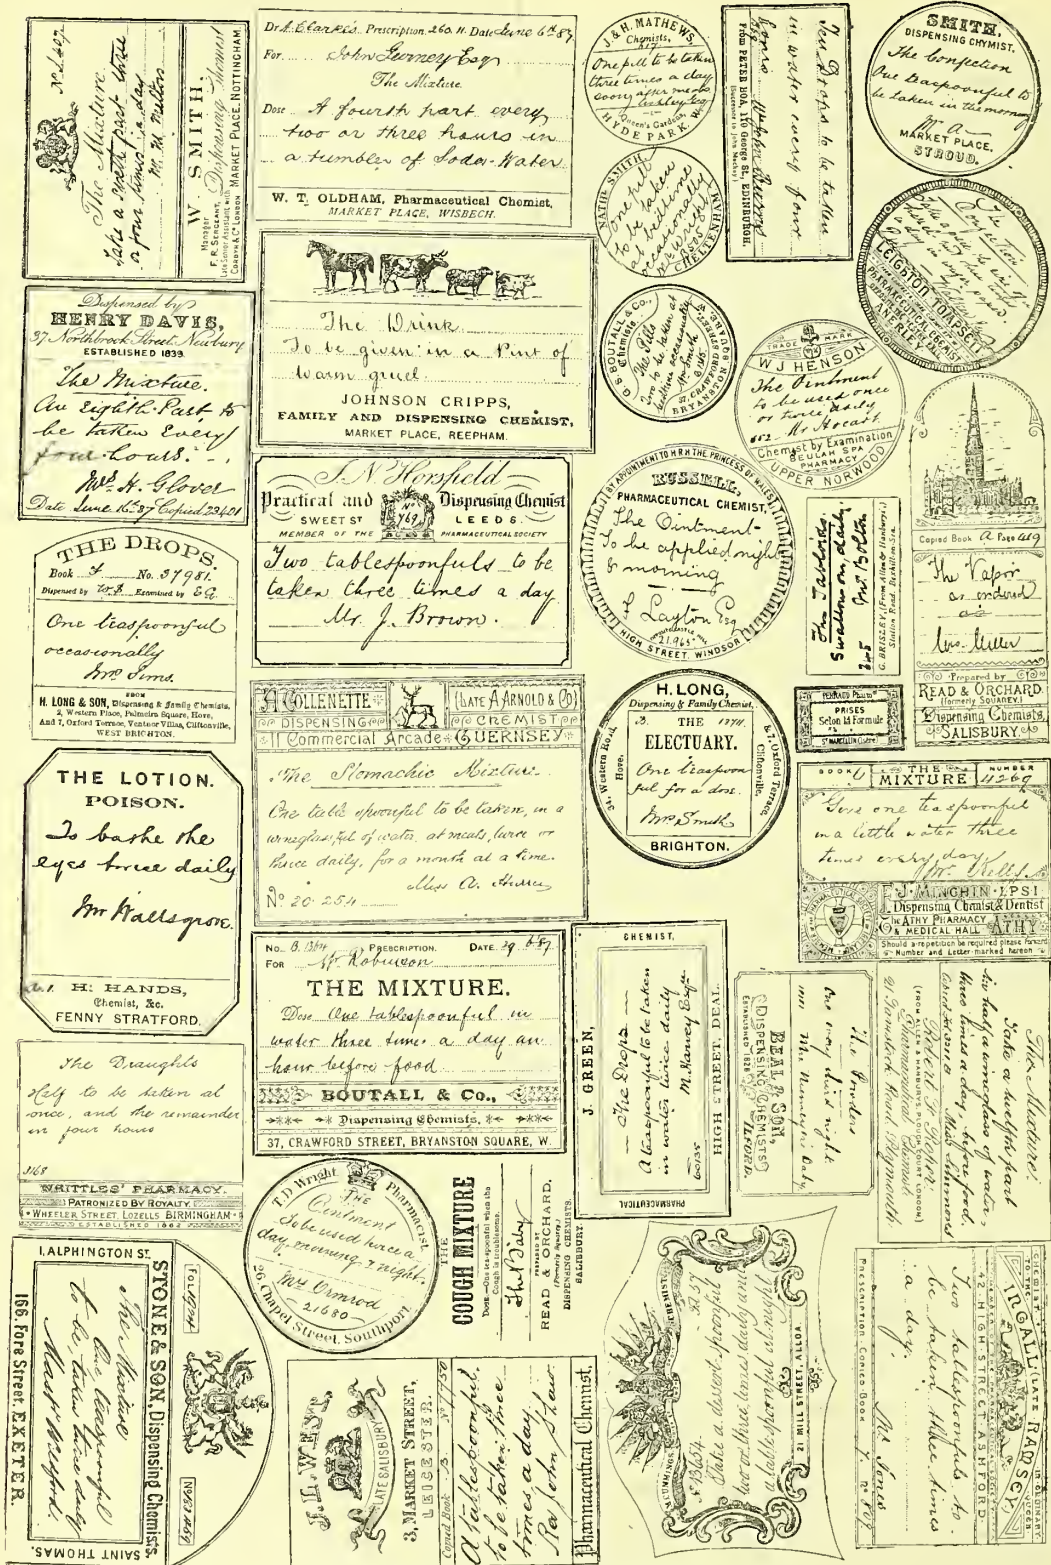 No 2407
The Mixture
Take a sixth part three
or four times a day
W. SMITH,
Dispensing Chemist
MARKET PLACE, NOTTINGHAM.
Manager
F. R. SERGEANT,
Late Senior Assistant with
CORBYN & Co LONDON
Dr A. Clarke's Prescription 260 H. Date June 6th 87
For John Gurney Esqr
The Mixture
Dose A fourth part every
two or three hours in
a tumbler of Soda-Water
W. T. OLDHAM, Pharmaceutical Chemist,
MARKET PLACE, WISBECH.
J. & H. MATHEWS,
Chemists,
One pill to be taken
three times a day
soon after meals
Queen's Gardens,
HYDE PARK, W.
Ten Drops to be taken
in water every four
hours
From PETER BOA, 119 George St., EDINBURGH.
(Successor to John Mackay)
SMITH,
DISPENSING CHYMIST,
The Confection
One teaspoonful to
be taken in the morning
MARKET PLACE,
STROUD.
NATHL SMITH
One pill
to be taken
at bedtime
occasionally
CHELTENHAM
The
Confection
LEIGHTON TOMPSETT
PHARMACEUTICAL CHEMIST
ANERLEY
Dispensed by
HENRY DAVIS,
37 Northbrook Street, Newbury
ESTABLISHED 1839.
The Mixture.
An Eighth Part to
be taken every
four hours.
Mrs H. Glover
Date June 16th 87 Copied 23401
The Drink
To be given in a Pint of
warm gruel
JOHNSON CRIPPS,
FAMILY AND DISPENSING CHEMIST,
MARKET PLACE, REEPHAM.
G. S. BOUTALL & Co.,
Chemists
The Pills
Two to be taken at
bedtime occasionally
Mr Smith
37, CRAWFORD STREET,
BRYANSTON SQUARE. W.
TRADE MARK
W J HENSON
The Ointment
to be used once
or twice daily
Chemist by Examination
BEULAH SPA
PHARMACY
UPPER NORWOOD
J. N. Horsfield
Practical and Dispensing Chemist
No 769
SWEET ST LEEDS.
MEMBER OF THE PHARMACEUTICAL SOCIETY
Two tablespoonfuls to be
taken three times a day
Mr. J. Brown.
BY APPOINTMENT TO H R H THE PRINCESS OF WALES
RUSSELL,
PHARMACEUTICAL CHEMIST,
The Ointment
To be applied night
& morning
Layton Esq
21.965
HIGH STREET, WINDSOR
The Tabloids
Swallow one daily
Mr. Bolton
G. BRISLEY, (From Allen & Hanburys.)
Station Road, Bexhill-on-Sea.
Copied Book A Page 419
The Vapor
as ordered
Mrs. Miller
Prepared by
READ & ORCHARD
(formerly SQUAREY)
Dispensing Chemists,
SALISBURY.
THE DROPS.
Book No. 37981.
Dispensed by Examined by
One teaspoonful
occasionally
Mrs Sims.
FROM
H. LONG & SON, Dispensing & Family Chemists,
2, Western Place, Palmeira Square, Hove,
And 7, Oxford Terrace, Ventnor Villas, Cliftonville,
WEST BRIGHTON.
A COLLENETTE (LATE A ARNOLD & CO)
DISPENSING CHEMIST
11 Commercial Arcade GUERNSEY
The Stomachic Mixture.
One table spoonful to be taken, in a
wineglassful of water, at meals, twice or
thrice daily, for a month at a time.
No 20.254
H. LONG,
Dispensing & Family Chemist,
THE
ELECTUARY.
One teaspoon
ful for a dose.
Mrs Smith
34, Western Road, Hove.
& 7, Oxford Terrace, Cliftonville,
BRIGHTON.
PRISES
Selon la Formule
BOOK THE MIXTURE NUMBER 4269
Give one teaspoonful
in a little water three
times every day
E. J. MINCHIN. L.P.S.I.
Dispensing Chemist & Dentist
THE ATHY PHARMACY
& MEDICAL HALL ATHY
Should a repetition be required please forward
Number and Letter marked hereon
THE LOTION.
POISON.
To bathe the
eyes twice daily
Mr Wallsgrove.
H. HANDS,
Chemist, &c.
FENNY STRATFORD.
No. B.1364 PRESCRIPTION. DATE. 29.6.87
FOR Mr Robinson
THE MIXTURE.
Dose One tablespoonful in
water three times a day an
hour before food
BOUTALL & Co.,
Dispensing Chemists,
37, CRAWFORD STREET, BRYANSTON SQUARE, W.
J. GREEN,
PHARMACEUTICAL CHEMIST,
The Drops
A teaspoonful to be taken
in water twice daily
M. Harvey Esqre
60135
HIGH STREET, DEAL.
The Powders
One every third night
BEAL & SON,
DISPENSING CHEMISTS
ILFORD.
ESTABLISHED 1828
The Mixture.
Take a twelfth part
in half a wineglass of water,
three times a day, before food.
Miss Simmons
Robert F. Roper,
(FROM ALLEN & HANBURYS, PLOUGH COURT, LONDON)
Pharmaceutical Chemist
21 Tavistock Road, Plymouth.
The Draughts
Half to be taken at
once, and the remainder
in four hours
3168
WHITTLES' PHARMACY.
PATRONIZED BY ROYALTY.
WHEELER STREET, LOZELLS BIRMINGHAM
ESTABLISHED 1862
T. D. Wright, Pharmacist,
THE
Ointment
To be used twice a
day, morning & night.
Mrs Ormrod
21680
26 Chapel Street, Southport.
THE
COUGH MIXTURE
DOSE.—One tea-spoonful when the
Cough is troublesome.
The Baby
PREPARED BY
READ & ORCHARD,
(Formerly Squarey)
DISPENSING CHEMISTS.
SALISBURY.
1, ALPHINGTON ST.
SAINT THOMAS.
STONE & SON, Dispensing Chemists,
The Mixture
One teaspoonful
to be taken twice daily
Mast Welsford.
166, Fore Street, EXETER.
J. L. WEST
LATE SALISBURY
3, MARKET STREET,
LEICESTER.
Copied Book B No 7750
A tablespoonful,
to be taken three
times a day.
Pharmaceutical Chemist.
CUMMINGS CHEMIST
Take a dessert-spoonful
two or three times daily in
a tablespoonful of water
21 MILL STREET, ALLOA.
INGALL (LATE RAMSEY)
42 HIGH STREET ASHFORD.
Two tablespoonfuls to
be taken three times
a day.
Mr Jones
PRESCRIPTION COPIED BOOK